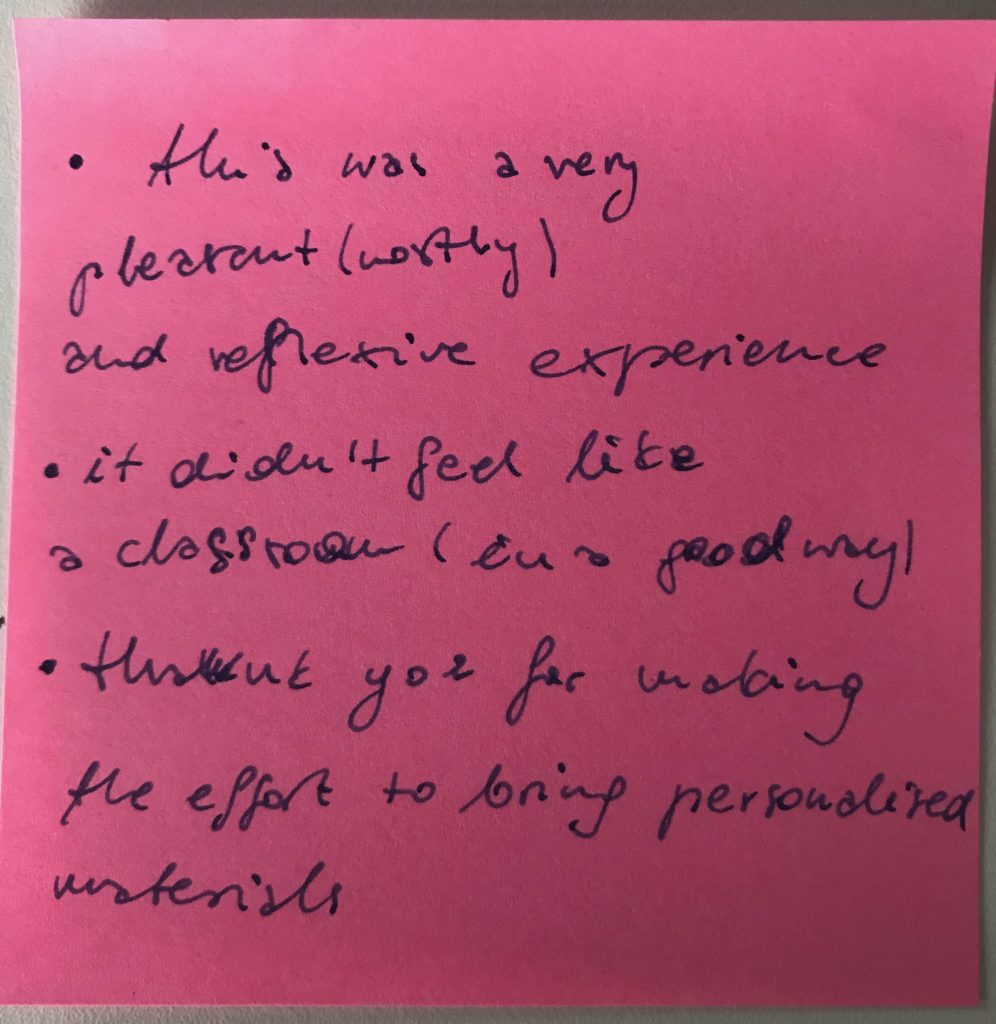 • this was a very
pleasant (mostly)
and reflexive experience
• it didn't feel like
a classroom (in a good way)
• thank you for making
the effort to bring personalised
materials